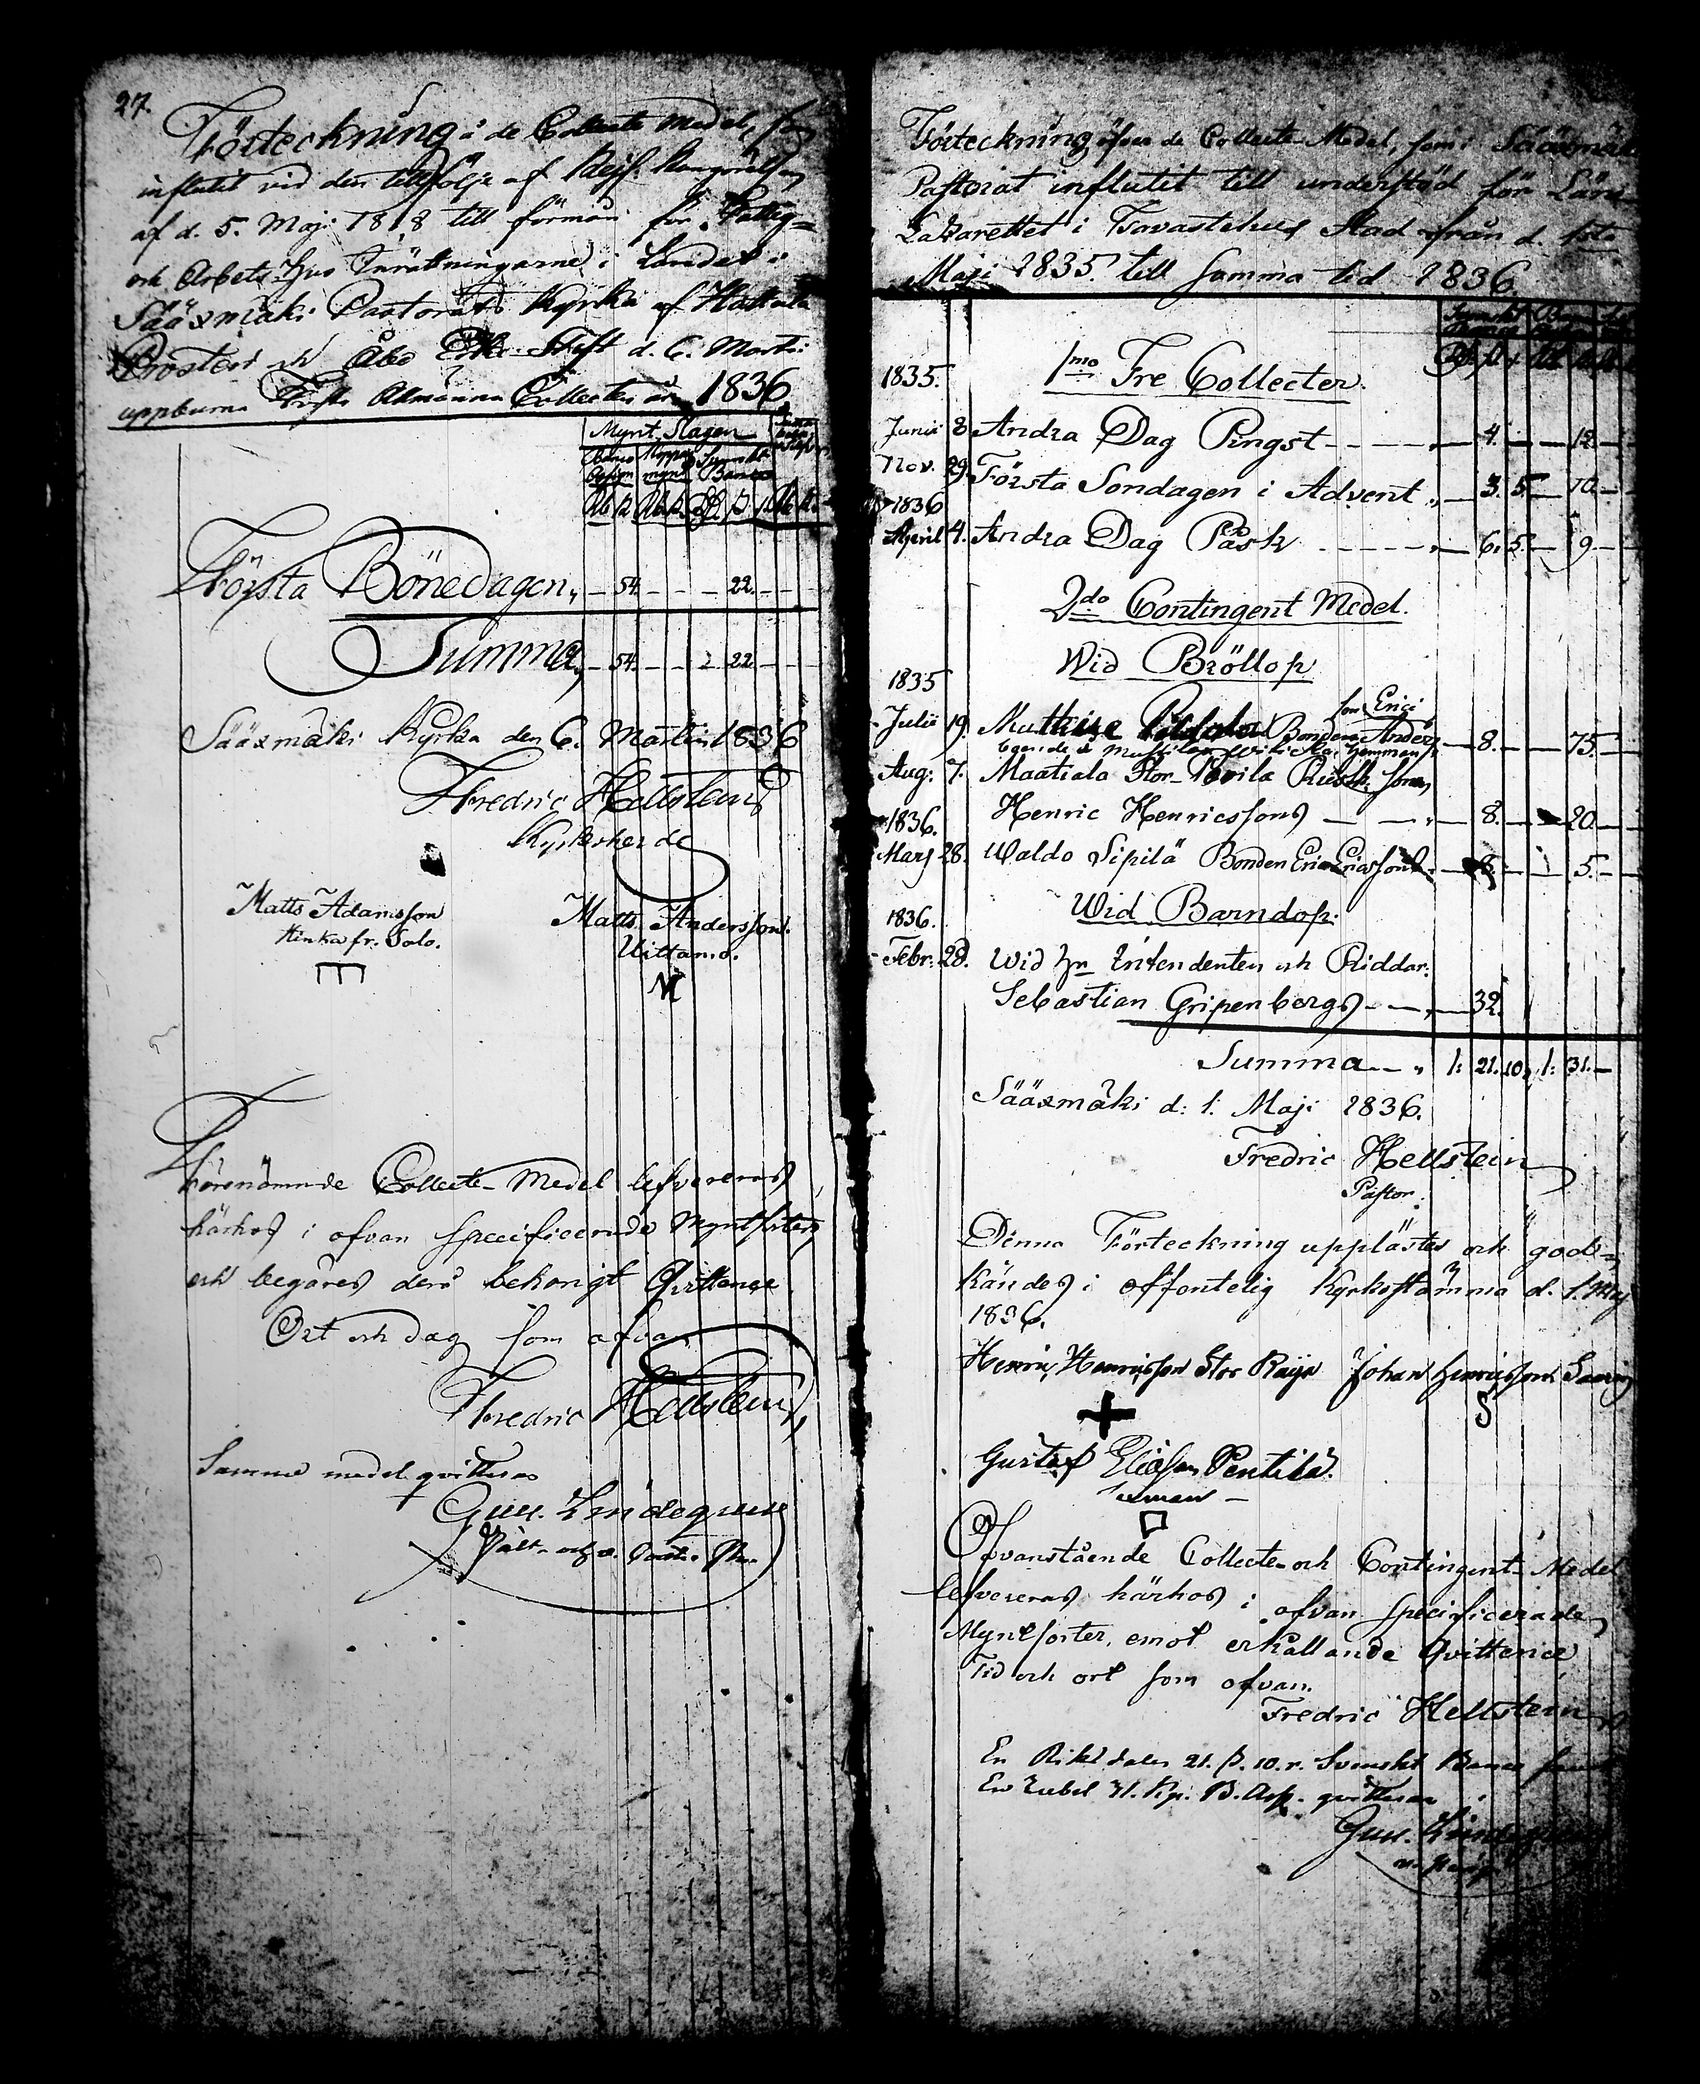 27.
Förteckning å de Collecte Medel, som
influtit vid den till följe af Kejs. Kungörelsen
af d. 5. Maji 1818 till förmån för Fattig=
och Arbets-Hus Inrättningarne i Landet i
Sääxmäki Pastorats Kyrka af Hattula
Prosteri och Åbo Erke-Stift d. 6. Martii
uppburna Första Allmänna Collecten år 1836.
Mynt Slagen
Banco Assign. Koppar mynt Svenskt Banco
Första Bönedagen, — 54. — — — 22. — —
Summa, — 54. — — — 22. — —
Sääxmäki Kyrka den 6. Martii 1836
Fredric Hellstein
Kyrkoherde
Matts Adamsson Matts Andersson
Hinka fr. Solo. Uittamo.
Förenämnde Collecte-Medel lefvereras
härhos i ofvan specificerade Myntsorter
och begäres derå behörigt Qvittence
Ort och dag som ofvan
Fredric Hellstein
Samma medel qvitteras
Gust.
Förteckning öfver de Collecte-Medel, som i Sääxmäki
Pastorat influtit till understöd för Läns
Lazarettet i Tavastehus Stad från d. 1sta
Maji 1835 till samma tid 1836.
1835. 1mo Fre Collecter.
Junii 8 Andra Dag Pingst — 4. — — 12. —
Nov. 29. Första Söndagen i Advent „ — 3. 5. — 10. —
1836
April 4. Andra Dag Påsk — 6. 5. — 9 —
2do Contingent Medel.
Wid Bröllop
1835
son Erici
Julii 19. Bonden Anders — 8. — — 75. —
Aug: 7. Maatiala Stor-
Henric Henricssons — 8. — — 20. —
1836.
Mars 28. Waldo Sipilä Bonden Eric Ericssons — 8. — — 5. —
Wid Barndop.
1836.
Febr: 28. Wid Hr Intendenten och Riddar.
Sebastian Gripenbergs — 32.
Summa — „ 1: 21. 10. 1: 31. —
Sääxmäki d: 1. Maji 1836.
Fredric Hellstein
Pastor.
Denna Förteckning upplästes och god=
kändes i offentelig Kyrkostämma d. 1. Maj
1836.
Henric Henricsson Stor Raija Johan Henricsson
S
Gustaf Eliasson Pentilä.
Ofvanstående Collecte- och Contingent-Medel
lefvereras härhos i ofvan specificerade
Myntsorter, emot erhållande Qvittence
Tid och ort som ofvan.
Fredric Hellstein
En Riksdaler 21. s. 10. r. Svenskt Banco samt
En Rubel 31. Kp. B. Ass. qvitteras
Gust.